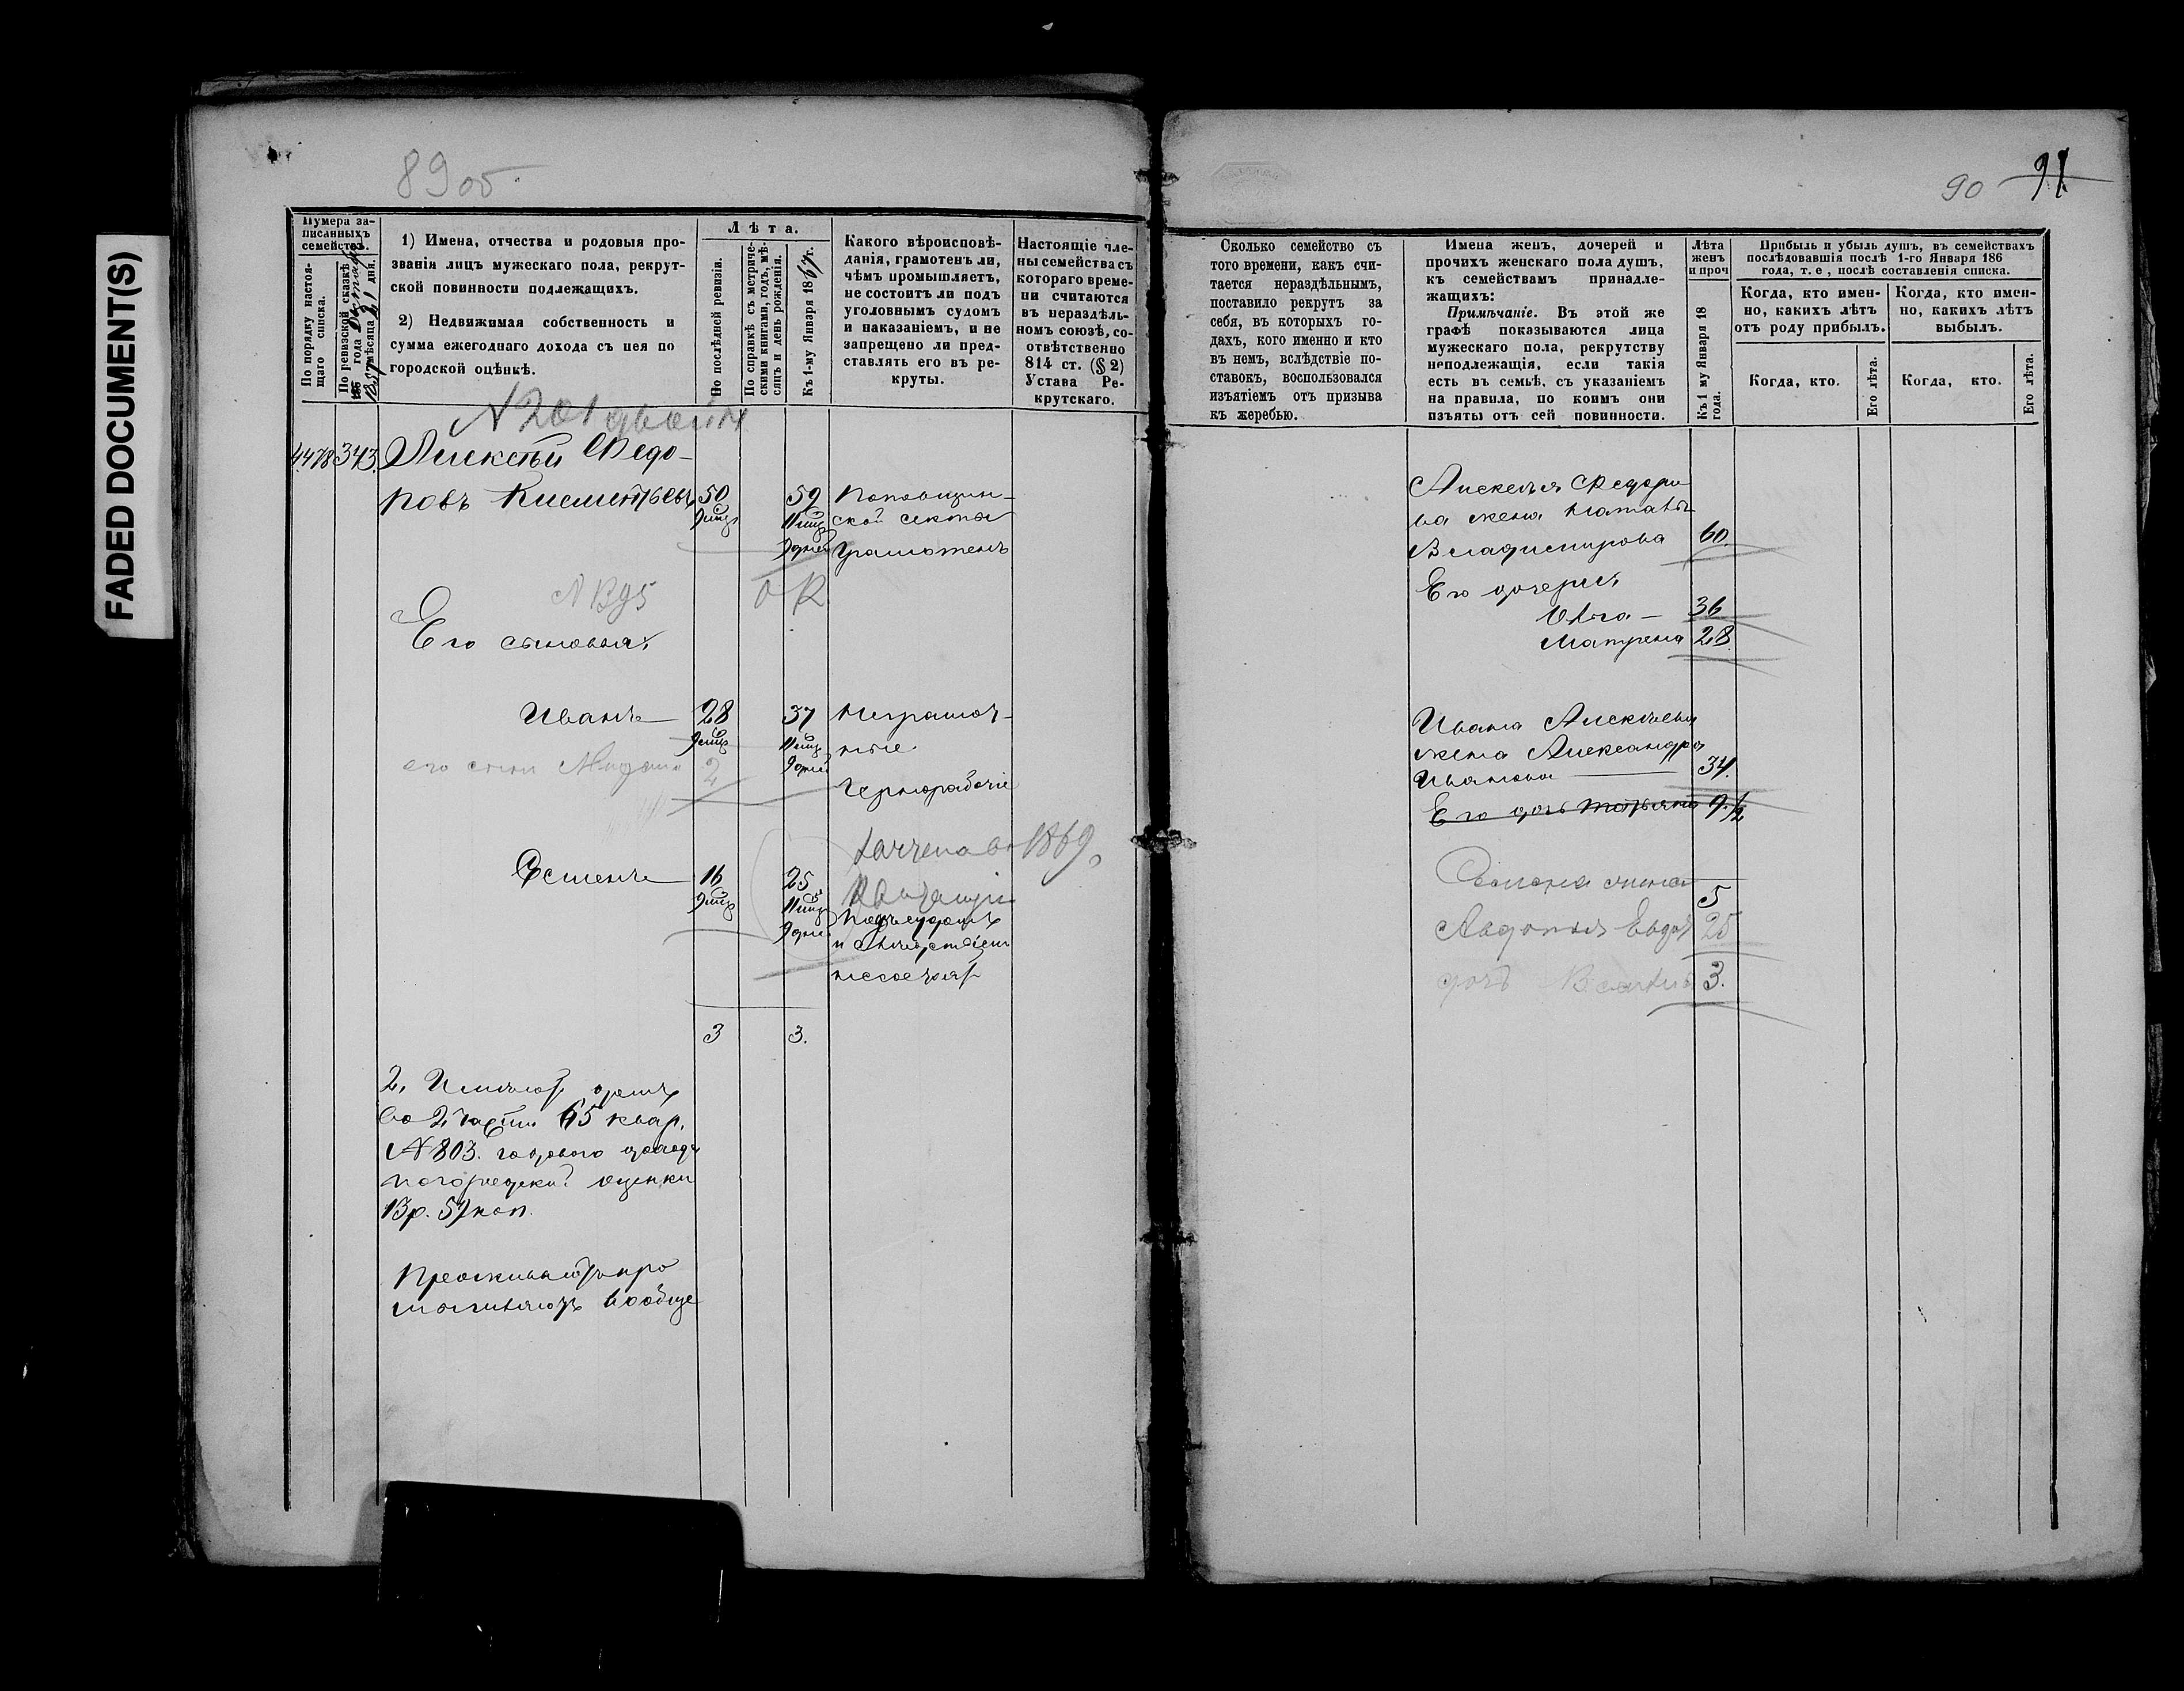 FADED DOCUMENT(S)
89 об.
Нумера за-
писанныхъ
семействъ.
По порядку настоя-
щаго списка.
По ревизской сказкѣ
года
мѣсяца 31 дня.
1) Имена, отчества и родовыя про-
званія лицъ мужескаго пола, рекрут-
ской повинности подлежащихъ.
2) Недвижимая собственность и
сумма ежегоднаго дохода съ нея по
городской оцѣнкѣ.
Лѣта.
По послѣдней ревизіи.
По справкѣ съ метриче-
скими книгами, годъ, мѣ-
сяцъ и день рожденія.
Къ 1-му Января 1867 г.
Какого вѣроисповѣ-
данія, грамотенъ ли,
чѣмъ промышляетъ,
не состоитъ ли подъ
уголовнымъ судомъ
и наказаніемъ, и не
запрещено ли пред-
ставлять его въ ре-
круты.
Настоящіе чле-
ны семейства съ
котораго време-
ни считаются
въ нераздѣль-
номъ союзѣ, со-
отвѣтственно
814 ст. (§ 2)
Устава Ре-
крутскаго.
N 201 двойн
4478 343. Алексѣй Федо-
ровъ Клементьевъ 50 59 Поповщин-
9 мцъ 11 мцъ ской секты
9 дней Грамотенъ
Его сыновья,
Иванъ 28 37 Неграмот-
9 мцъ 11 мцъ ные.
его сынъ 2 9 дней
Чернорабочіе
1869
Семенъ 16 25
9 мцъ 11 мцъ Подъ судомъ
9 дней и слѣдствіемъ
несостоятъ
3 3.
2, Имѣютъ домъ
во 2 части 65 квар.
N 803. годового доходу
погородской оценки
13 р. 57 коп.
Проживаютъ и про
мышляютъ вообще
90 91.
Сколько семейство съ
того времени, какъ счи-
тается нераздѣльнымъ,
поставило рекрутъ за
себя, въ которыхъ го-
дахъ, кого именно и кто
въ немъ, вслѣдствіе по-
ставокъ, воспользовался
изъятіемъ отъ призыва
къ жеребью.
Имена женъ, дочерей и
прочихъ женскаго пола душъ,
къ семействамъ принадле-
жащихъ:
Примѣчаніе. Въ этой же
графѣ показываются лица
мужескаго пола, рекрутству
неподлежащія, если такія
есть въ семьѣ, съ указаніемъ
на правила, по коимъ они
изъяты отъ сей повинности.
Лѣта
женъ
и проч
Къ 1 му Января 18
года.
Прибыль и убыль душъ, въ семействахъ
послѣдовавшія послѣ 1-го Января 186
года, т. е., послѣ составленія списка.
Когда, кто имен-
но, какихъ лѣтъ
отъ роду прибылъ.
Когда, кто имен-
но, какихъ лѣтъ
выбылъ.
Когда, кто.
Его лѣта.
Когда, кто.
Его лѣта.
Алексѣя Федоро
ва жена Наталья
Владимирова 60.
Его дочери,
Ольга 36
Матрена 28.
Ивана Алексѣева
жена Александра
Иванова 34.
Его дочь Татьяна 9 ½
Семена жена
5
Авдотья 25
дочь 3.